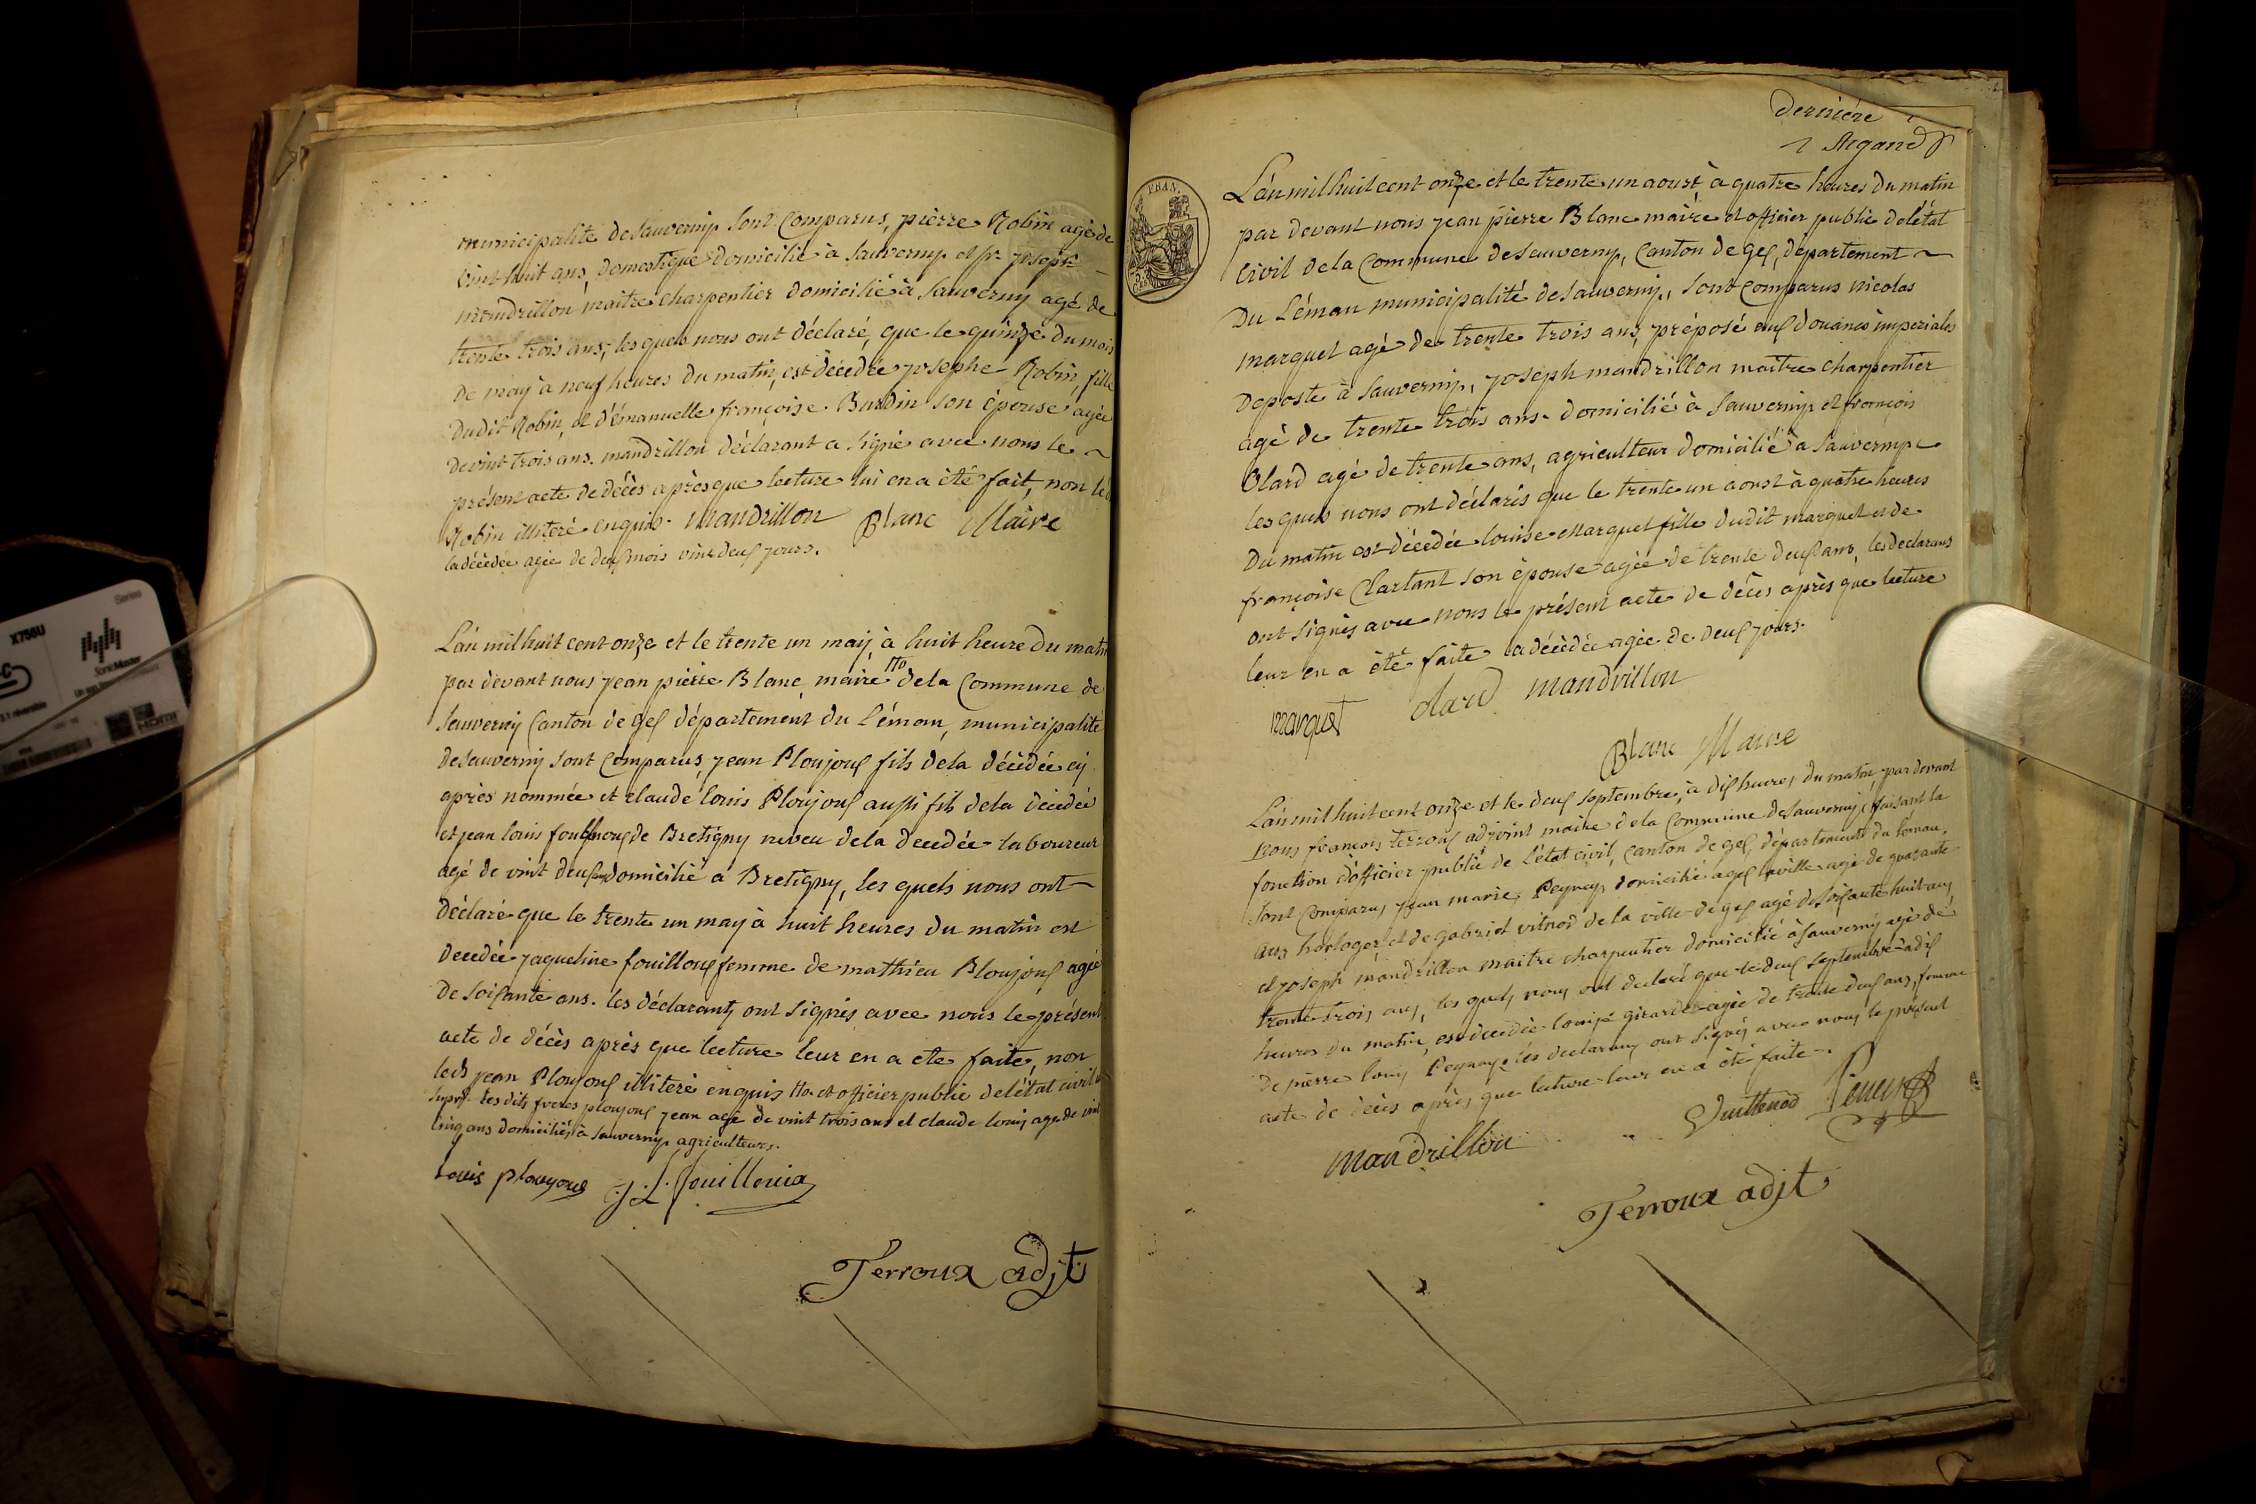 municipalité de Sauverny sont Comparus, pierre Robin agé de
vint huit ans, domestique domicilié à Sauverny et sr joseph
mandrillon maitre charpentier domicilié à Sauverny agé de
trente trois ans, les quels nous ont déclaré, que le quinze du mois
de may à neuf heures du matin, est décédée josephe Robin, fille
dudit Robin, et d'émanuelle françoise Burdin son épouse agée
de vint trois ans. mandrillon déclarant a signé avec nous le
présent acte de décès après que lecture lui en a été fait, non led
Robin illiteré enquis. Mandrillon Blanc Maire
la décédée agée de deux mois vint deux jours.
L'an mil huit cent onze et le trente un may, à huit heure du matin
par devant nous jean pierre Blanc maire Ito de la Commune de
Sauverny Canton de gex département du Léman, municipalité
de Sauverny sont Comparus, jean Ploujoux fils de la décédée cy
après nommée et claude louis Ploujoux aussi fils de la décédée
et jean louis fouilloux de Bretigny neveu de la decedée laboureur
agé de vint deux domicilié à Bretigny, les quels nous ont
déclaré que le trente un may à huit heures du matin est
decedée jaqueline fouilloux femme de mathieu Ploujoux agée
de soixante ans. les déclarants ont signés avec nous le présent
acte de décès après que lecture leur en a ete faite, non
led jean Ploujoux illiteré enquis Ito et officier public de l'état civil
Les dits freres ploujoux jean agé de vint trois ans et claude louis agé de vint
cinq ans domiciliés à Sauverny agriculteurs.
Louis ploujoux J. L. fouilloux
Terroux adjt
Derniére
Argand
PRAN.
L'an mil huit cent onze et le trente un aoust, à quatre heures du matin
par devant nous jean pierre Blanc maire et officier public de l'état
civil de la Commune de Sauverny, Canton de gex, département
Du Léman municipalité de Sauverny, sont comparus nicolas
marquet agé de trente trois ans, préposé aux douanes imperiales
De poste à Sauverny, joseph mandrillon maitre charpentier
agé de trente trois ans domicilié à Sauverny et françois
Olard agé de trente ans, agriculteur domicilié à Sauverny
les quels nous ont déclarés que le trente un aoust à quatre heures
Du matin est décédée louise Marquet fille dudit marquet et de
françoise Chartant son épouse agée de trente deux ans, les declarans
ont signés avec nous le présent acte de décès après que lecture
leur en a été faite la décédée agée de deux jours.
marquet olard mandrillon
Blanc Maire
L'an mil huit cent onze et le deux septembre, à dix heures du matin, par devant
nous françois terroux adjoint maire de la Commune de Sauverny, faisant la
fonction d'officier public de l'état civil, Canton de gex, département du Léman,
sont Comparus jean marie Peyney, domicilié a gex la ville agé de quarante
ans horloger, et de gabriel vitnod de la ville de gex agé de soixante huit ans
et joseph mandrillon maitre charpentier domicilié à Sauverny agé de
trente trois ans, les quels nous ont declaré que le deux septembre à dix
heures du matin, est decedée louise girardet agée de trente deux ans, femme
de pierre louis Peyney, les declarans ont signés avec nous le présent
acte de décès après que lecture leur en a été faite.
Mandrillon Vuittenod
Terroux adjt